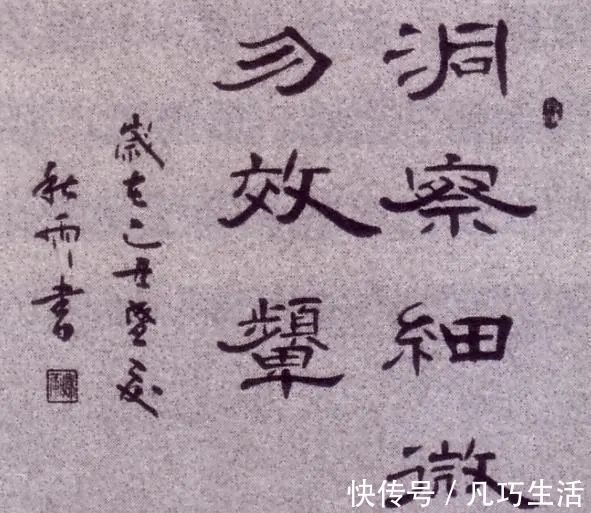 洞察細微
勿效顰
歲在己丑
秋雨書
快传号 / 凡巧生活